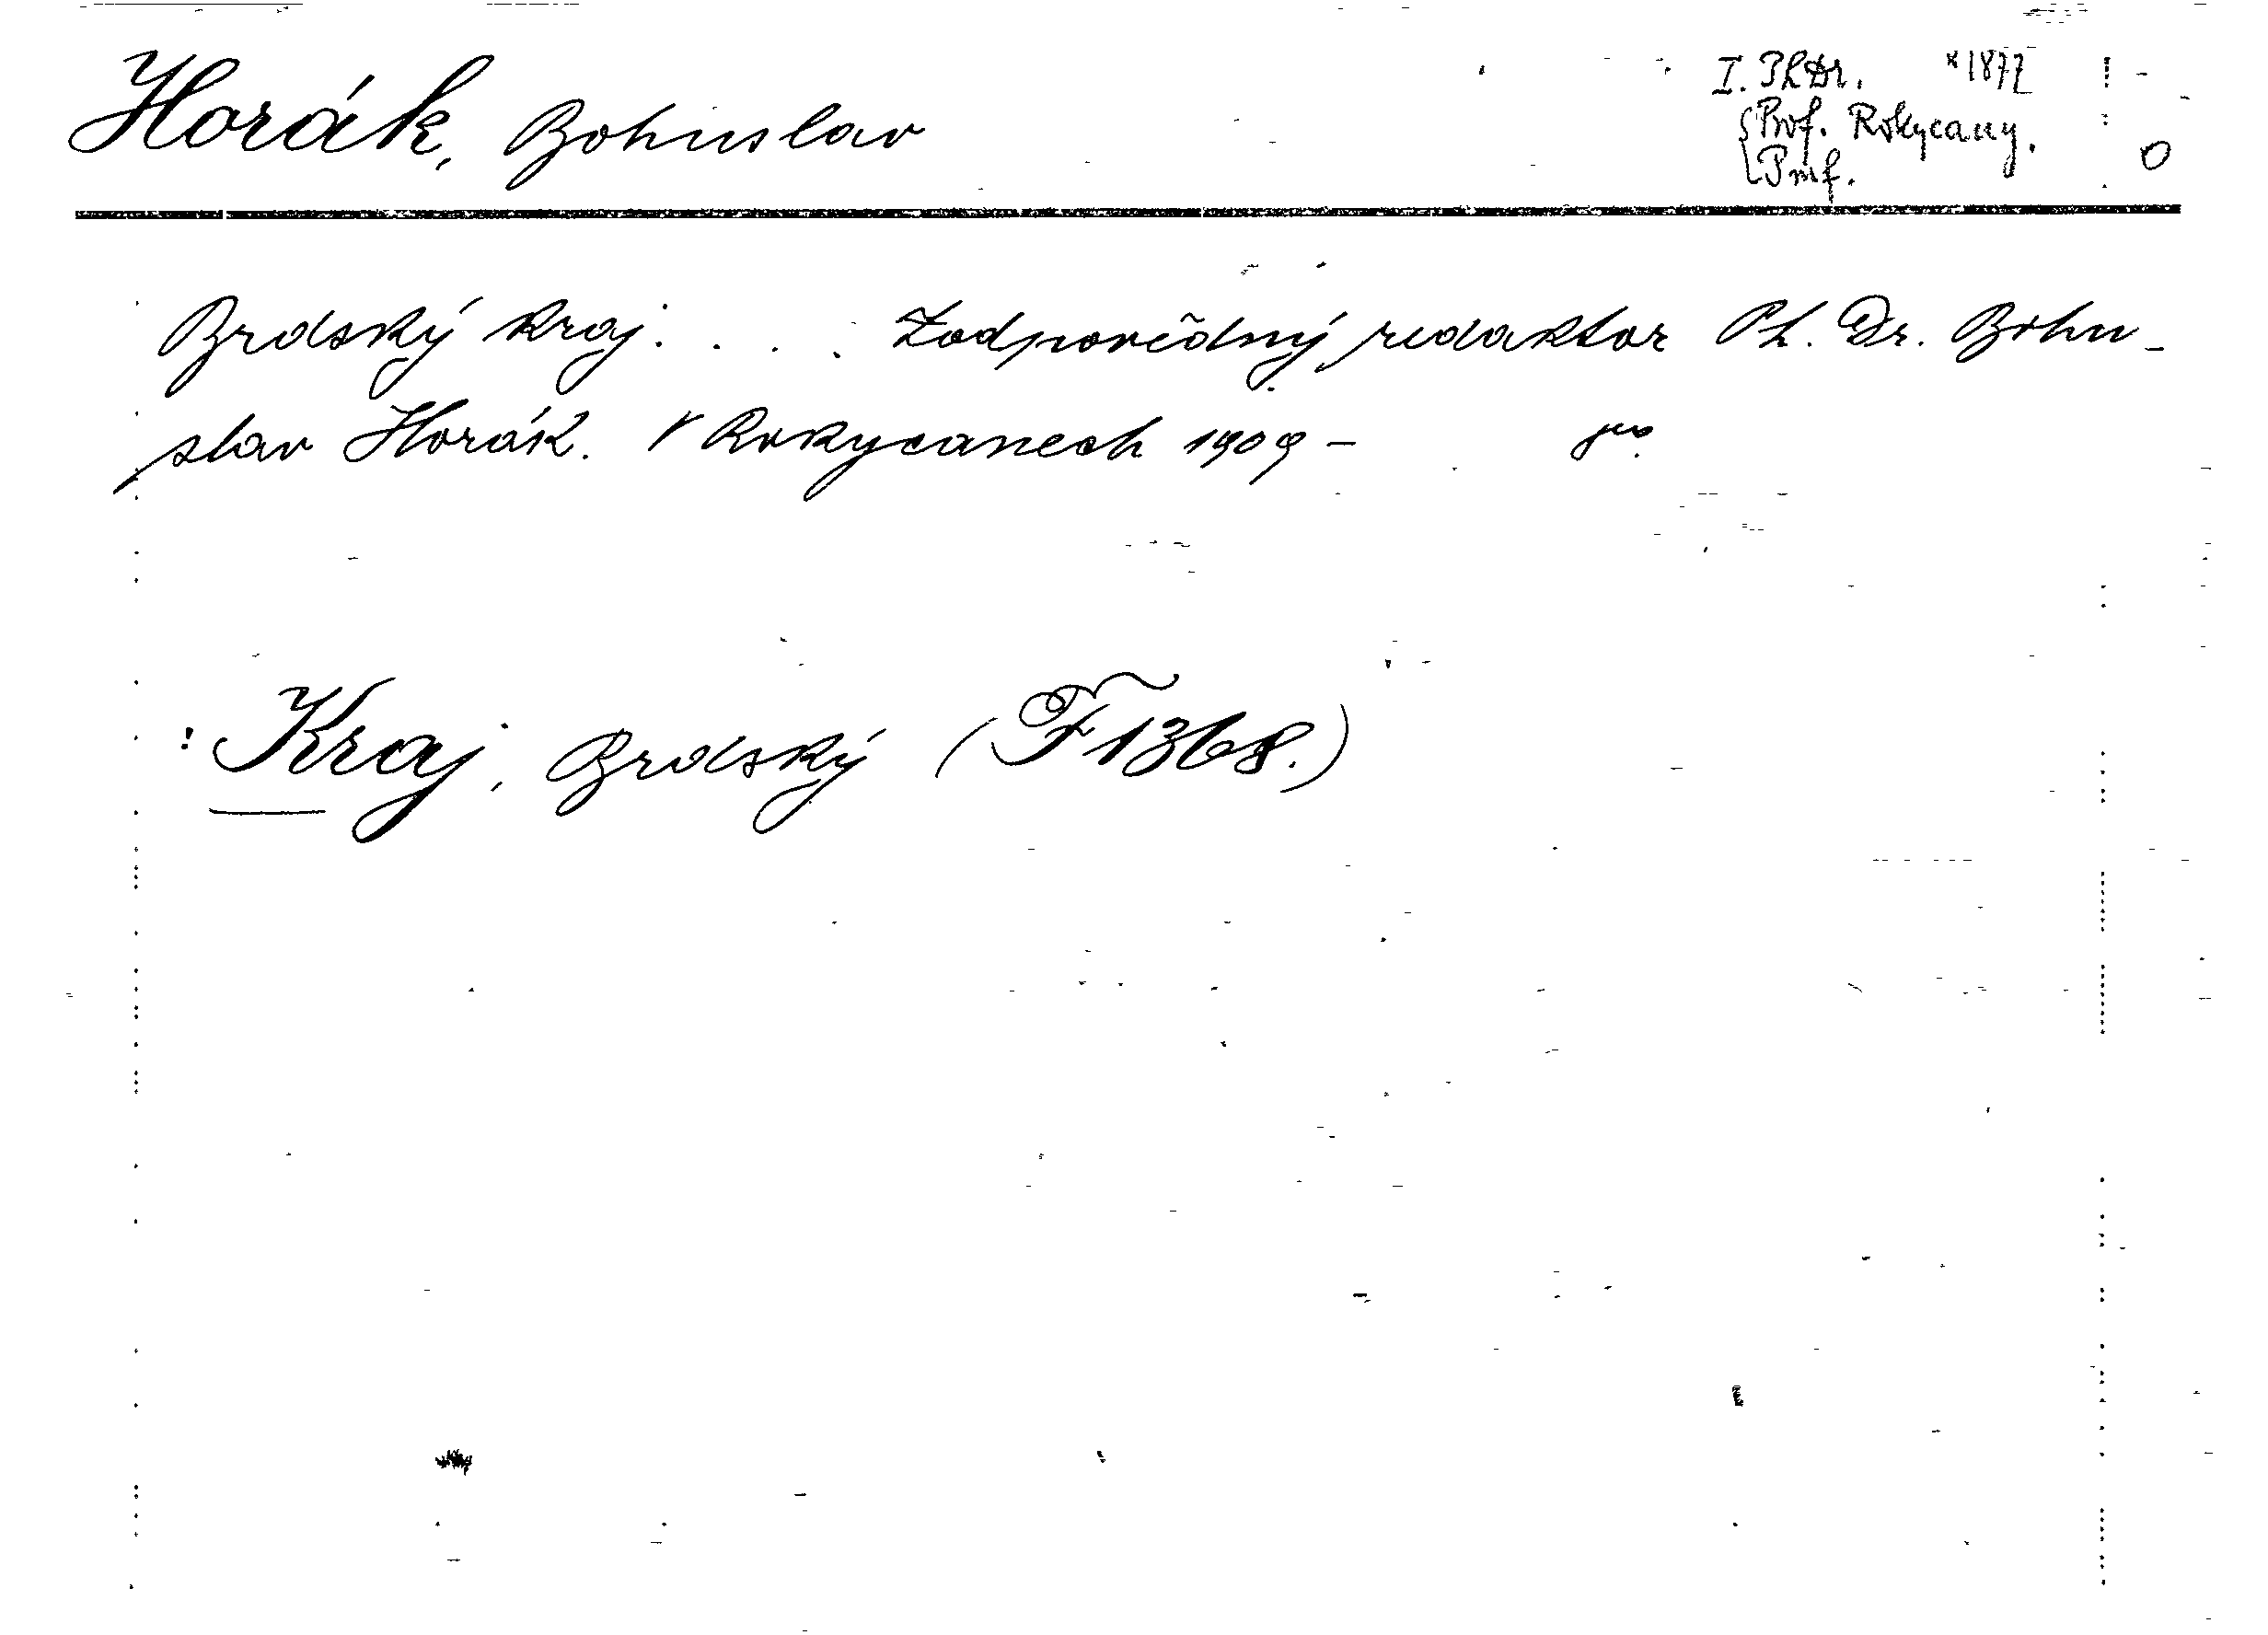 Horák, Bohuslav
I. PhDr. *1877
Prof. Rokycany.
Pmf.
Brdský kraj. . . . Zodpovědný redaktor Ph. Dr. Bohu-
slav Horák. V Rokycanech 1909 –
: Kraj, Brdský (F 1368.)